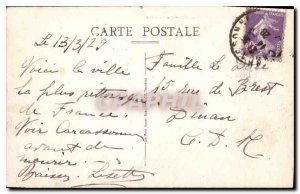 CARTE POSTALE
Le 13/3/29
Voici la ville
la plus pittoresque
de France.
Voir Carcassonne
avant de
mourir.
Baisers Lisette
Famille Le
15 rue de Brest
Dinan
C.D.N